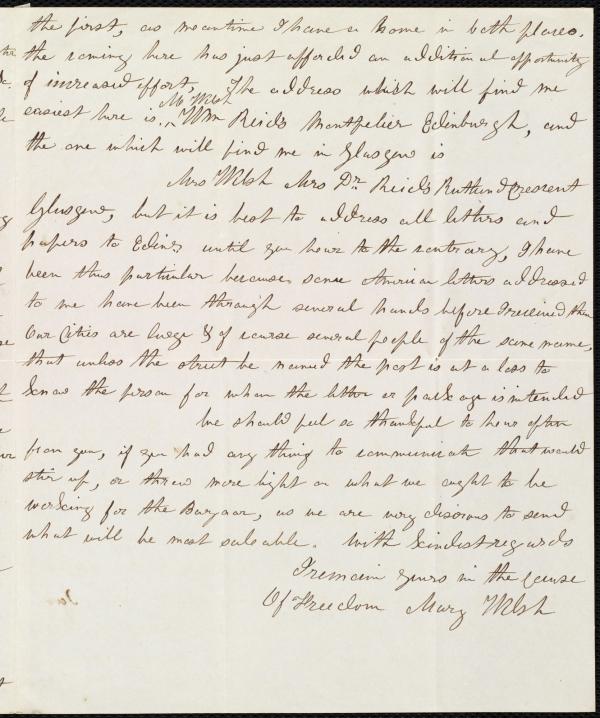 the first, as meantime I have a home in both places.
the coming here has just afforded an additional opportunity
of increased effort, The address which will find me
easiest here is. Mr Welsh Wm Reids Montpelier Edinburgh, and
the one which will find me in Glasgow is
Mrs Welsh Mrs Dr. Reids Rutland Crescent
Glasgow, but it is best to address all letters and
papers to Edinr until you hear to the contrary, I have
been thus particular because some American letters addressed
to me have been through several hands before I received them
Our Cities are large & of course several people of the same name,
that unless the street be named the post is at a loss to
know the person for whom the letter or package is intended
We should feel so thankful to hear often
from you, if you had any thing to communicate that would
stir up, or throw more light on what we ought to be
working for the Bazaar, as we are very desirous to send
what will be most saleable. With kindest regards
I remain yours in the Cause
Of Freedom Mary Welsh